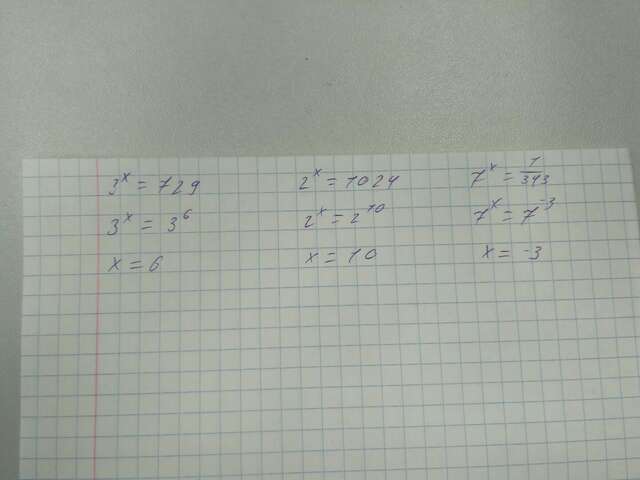 3^x = 729
3^x = 3^6
x = 6
2^x = 1024
2^x = 2^10
x = 10
7^x = 1/343
7^x = 7^-3
x = -3